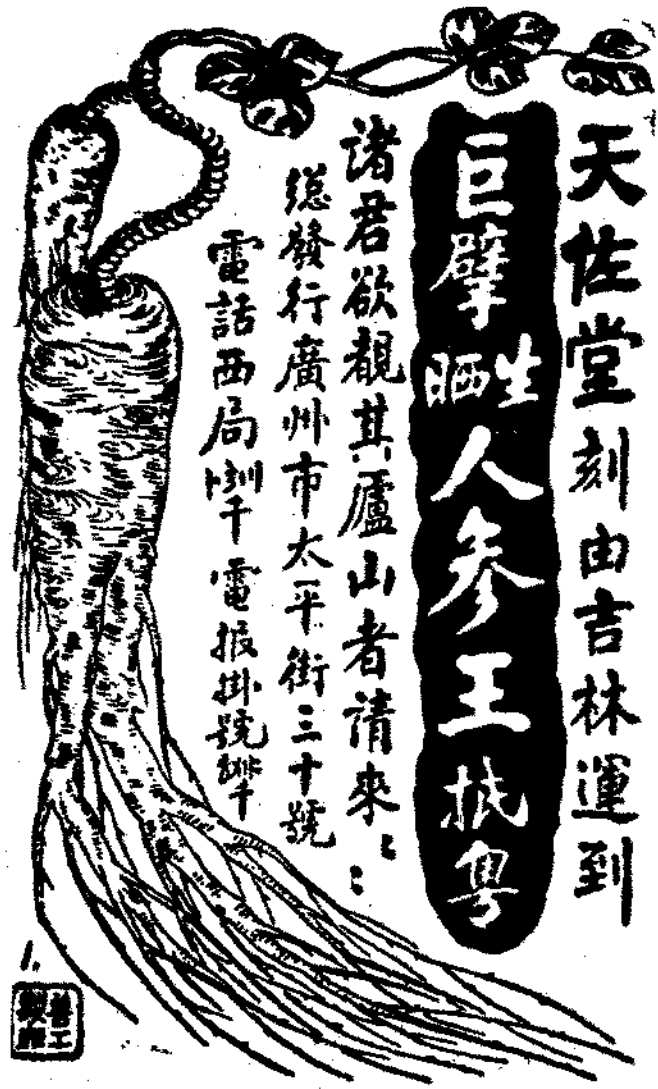 天佐堂刻由吉林運到
巨擘生晒人參王抵粵
諸君欲覩其廬山者請來
總發行廣州市太平街三十號
電話西局
電报掛號